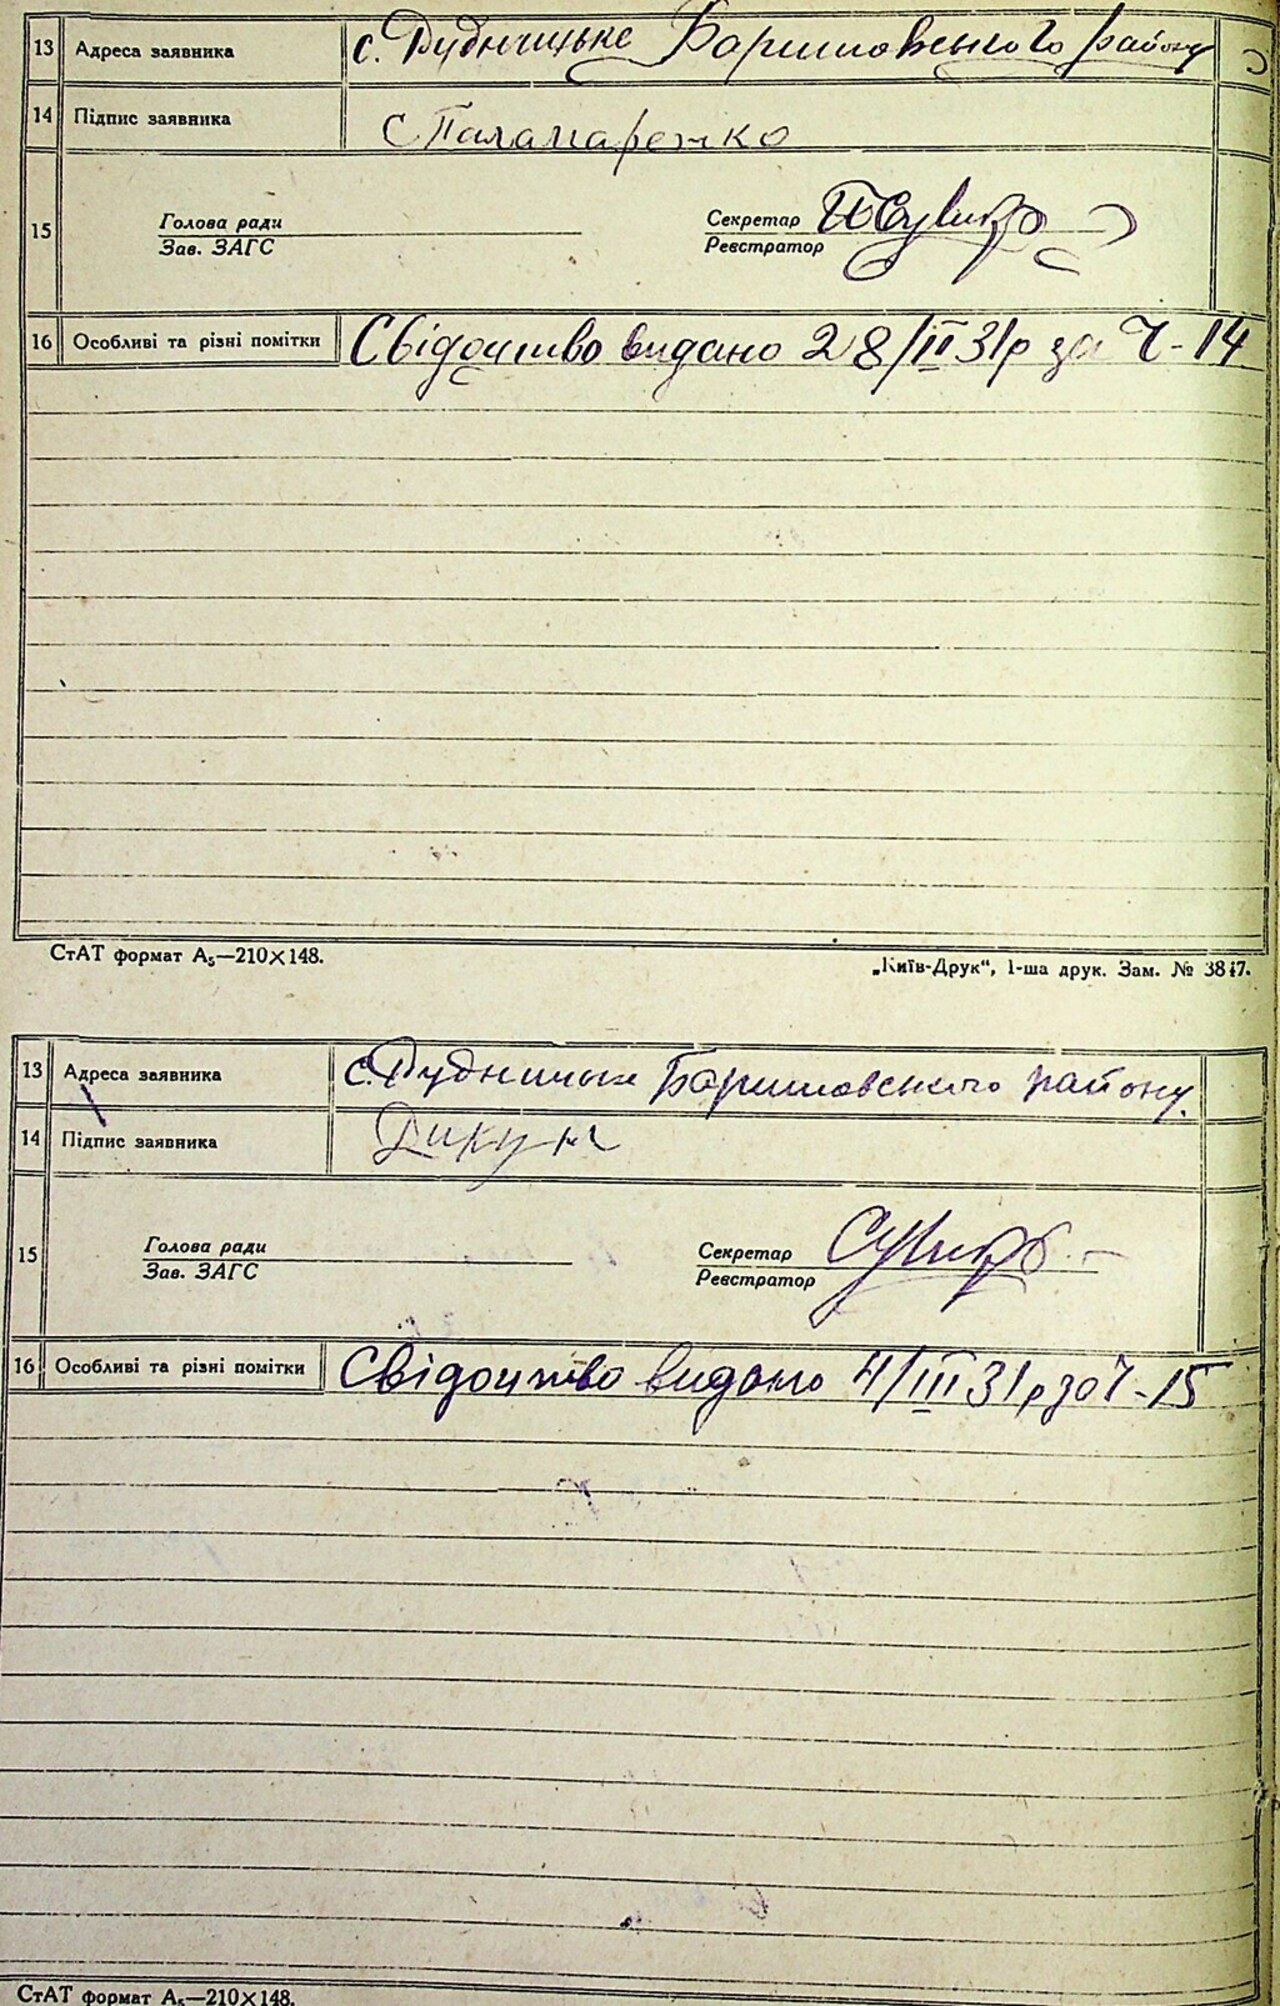 13 Адреса заявника с. Рудницьке Баришовського району
14 Підпис заявника С Паламаренко
15 Голова ради Секретар
Зав. ЗАГС Реєстратор
16 Особливі та різні помітки Свідоцтво видано 28/II 31р за Ч-14
СтАТ формат А₅—210×148. „Київ-Друк“, 1-ша друк. Зам. № 3847.
13 Адреса заявника с. Рудницьке Баришовського району.
14 Підпис заявника Дикун
15 Голова ради Секретар
Зав. ЗАГС Реєстратор
16 Особливі та різні помітки Свідоцтво видано 4/III 31р за Ч-15
СтАТ формат А₅—210×148.